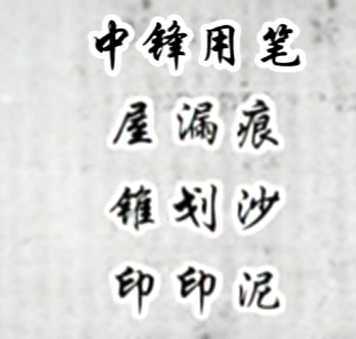 中锋用笔
屋漏痕
锥划沙
印印泥